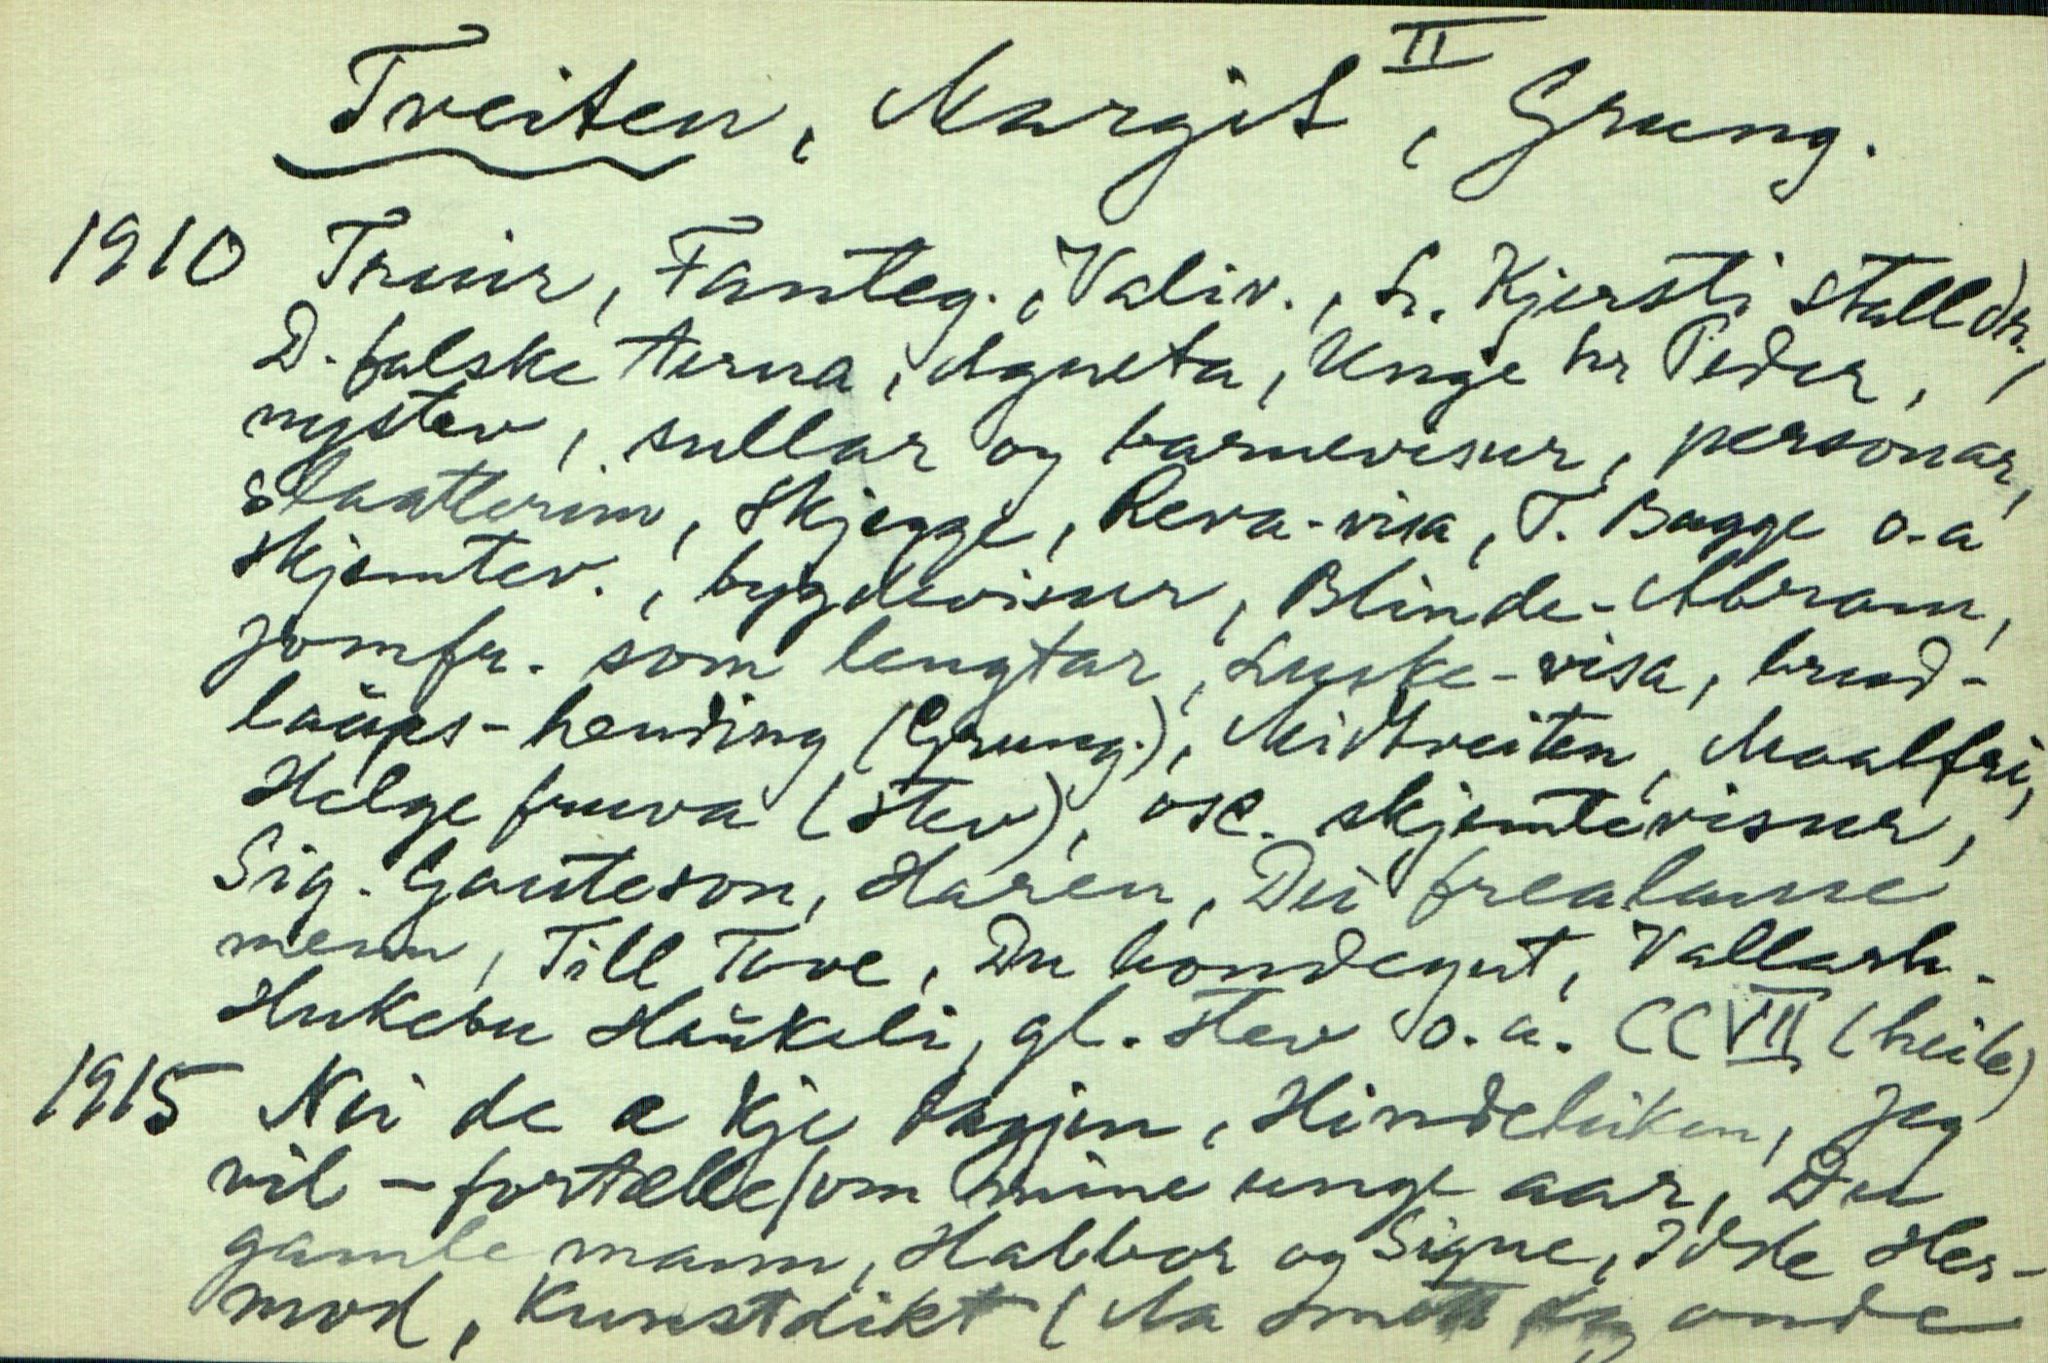 Tveiten, Margit II, Grung.
1910 Truir, Fanteg., Valiv., L. Kjersti stalldr.,
D. falske terna, Agneta, Unge hr Peder,
nystev, sullar og barnevisur, personar,
slaatterim, Skjegge, Reva-visa, T. Bagge o.a
skjemtev., bygdevisur, Blinde-Abram,
jomfr. som lengtar, Luske-visa, brud-
laups-hending (Grung.), Midtveiten, Maalfri,
Helge fruva (stev), ose. skjemtevisur,
Sig. Gauteson, Haren, Dei frealause
menn, Till Tove, Du bondegut, Vallarh.
Hukebu Haukeli, gl. stev o.a. CCVII (heile)
1915 Nei de æ kje dagjen, Hindeleiken, Jeg
vil - fortælle/om mine unge aar, Du
gamle mann, Habbor og Signe, Idde Her-
mod, Kunstdikt ( onde